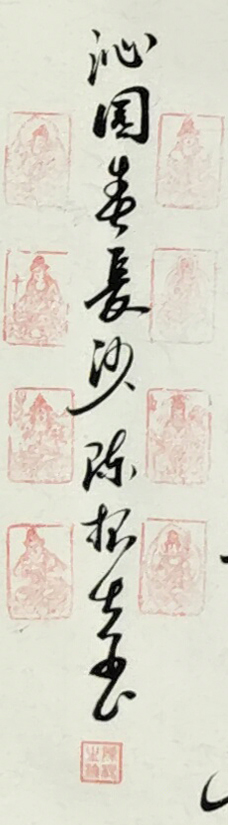 沁园春长沙 陈振生书